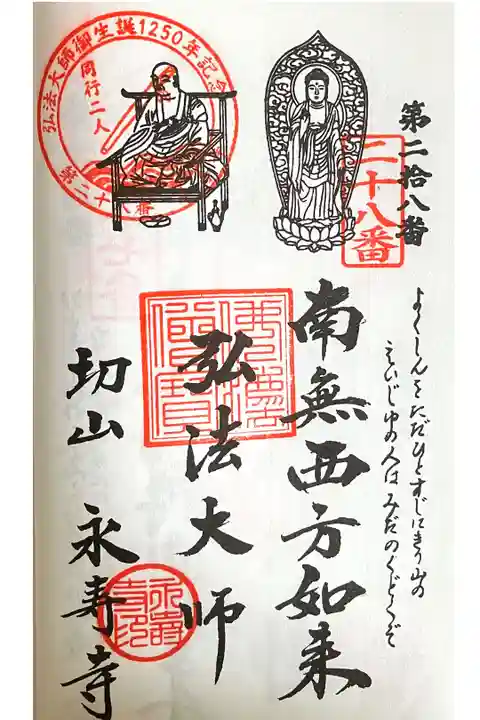 第二拾八番
二十八番
よくしんをただひとすじにきり山の
えいじゆの人はみだのくどくぞ
南無西方如来
弘法大師
切山 永寿寺
弘法大師御生誕1250年記念
同行二人
第二十八番